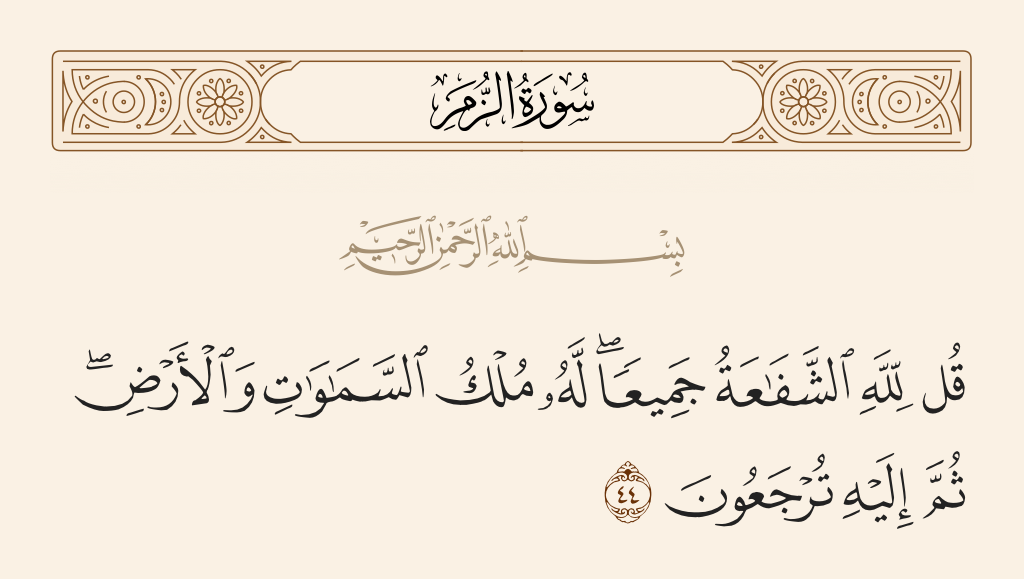 سُورَةُ الزُّمَرِ
بِسْمِ ٱللَّهِ ٱلرَّحْمَٰنِ ٱلرَّحِيمِ
قُل لِّلَّهِ ٱلشَّفَٰعَةُ جَمِيعًا ۖ لَّهُۥ مُلْكُ ٱلسَّمَٰوَٰتِ وَٱلْأَرْضِ ۖ
ثُمَّ إِلَيْهِ تُرْجَعُونَ ٤٤